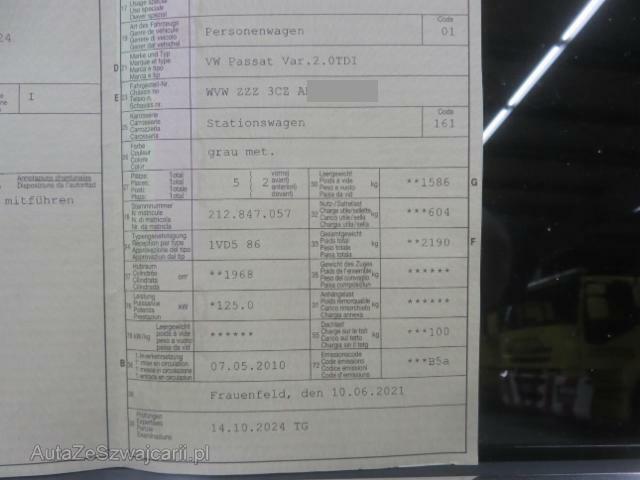 Usage spécial
Uso speciale
Diever spezial
24
Art des Fahrzeugs
Genre de véhicule
Genere di veicolo
Gener dal vehichel
Personenwagen
Code
01
D
Marke und Typ
Marque et type
Marca e tipo
Marca e tip
VW Passat Var.2.0TDI
I
E 23
Fahrgestell-Nr.
Châssis no
Telaio n.
Schassis nr.
WVW ZZZ 3CZ
Karosserie
Carrosserie
Carrozzeria
Carossaria
Stationswagen
Code
161
Farbe
Couleur
Colore
Color
grau met.
mitführen
Plätze: Total
Places: Total
Posti: Totale
Plazs: Total
5 ( 2
vorne)
avant)
anteriori)
davant)
Leergewicht
Poids à vide
Peso a vuoto
Paisa da vid
kg
**1586
G
Stammnummer
N matricule
N. di matricola
Nr. da matricla
212.847.057
32
Nutz-/Sattellast
Charge utile/sellette
Carico utile/sella
Chargia utila/sella
kg
***604
Typengenehmigung
Réception par type
Approvazione del tipo
Approvaziun dal tip
1VD5 86
33
Gesamtgewicht
Poids total
Peso totale
Paisa totala
kg
**2190
F
37
Hubraum
Cylindrée
Cilindrata
Cilindrada
cm³
**1968
35
Gewicht des Zuges
Poids de l'ensemble
Peso del convoglio
Paisa cumposiziun
kg
******
76
Leistung
Puissance
Potenza
Prestaziun
kW
*125.0
31
Anhängelast
Poids remorquable
Carico rimorchiato
Chargia annexa
kg
******
78 kW/kg
Leergewicht
poids à vide
peso a vuoto
paisa da vid
******
55
Dachlast
Charge sur le toit
Carico sul tetto
Chargia sin il tetg
kg
***100
B 36
1. Inverkehrsetzung
1re mise en circulation
1a messa in circolazione
1. entrada en circulaziun
07.05.2010
72
Emissionscode
Code émissions
Codice emissioni
Code d'emissiuns
***B5a
38
Frauenfeld, den 10.06.2021
39
Prüfungen
Expertises
Perizie
Examinaziuns
14.10.2024 TG
AutaZeSzwajcarii.pl